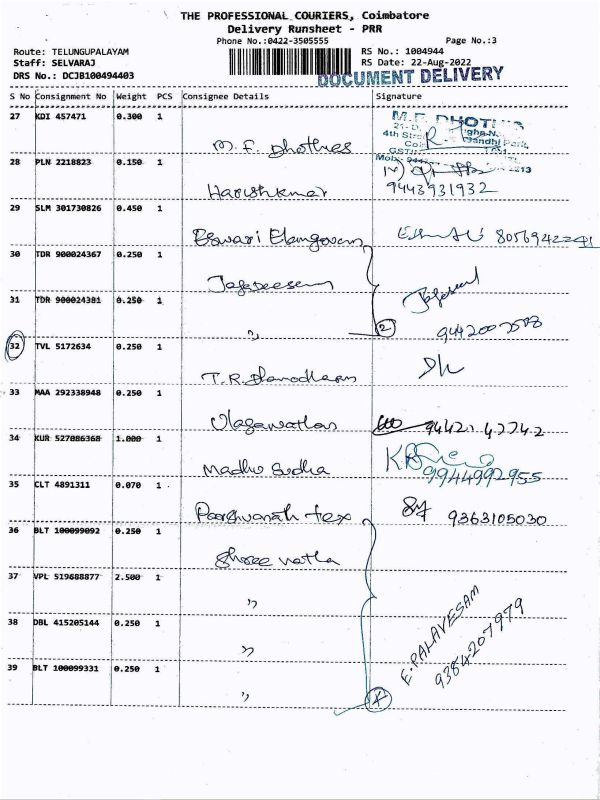 THE PROFESSIONAL COURIERS, Coimbatore
Delivery Runsheet - PRR
Phone No.:0422-3505555 Page No.:3
Route: TELUNGUPALAYAM RS No.: 1004944
Staff: SELVARAJ RS Date: 22-Aug-2022
DRS No.: DCJB100494403 DOCUMENT DELIVERY
S No Consignment No Weight PCS Consignee Details Signature
27 KDI 457471 0.300 1 M.F. Dhothies
M.F. DHOTIES
4th Street
28 PLN 2218823 0.150 1 Harishkumar
9443931932
29 SLM 301730826 0.450 1 Eswari Elangovan
30 TDR 900024367 0.250 1 Jagadeesan
31 TDR 900024381 0.250 1 "
2
32 TVL 5172634 0.250 1 T.R. Dhamodharan
33 MAA 292338948 0.250 1 Ulaganathan
34 KUR 527086368 1.000 1 Madhu Sudha
9944992955
35 CLT 4891311 0.070 1 Parshvanath tex
9363105030
36 BLT 100099092 0.250 1 Shree natha
37 VPL 519688877 2.500 1 "
38 DBL 415205144 0.250 1 "
E. PALAVESAM
9384207979
39 BLT 100099331 0.250 1 "
4